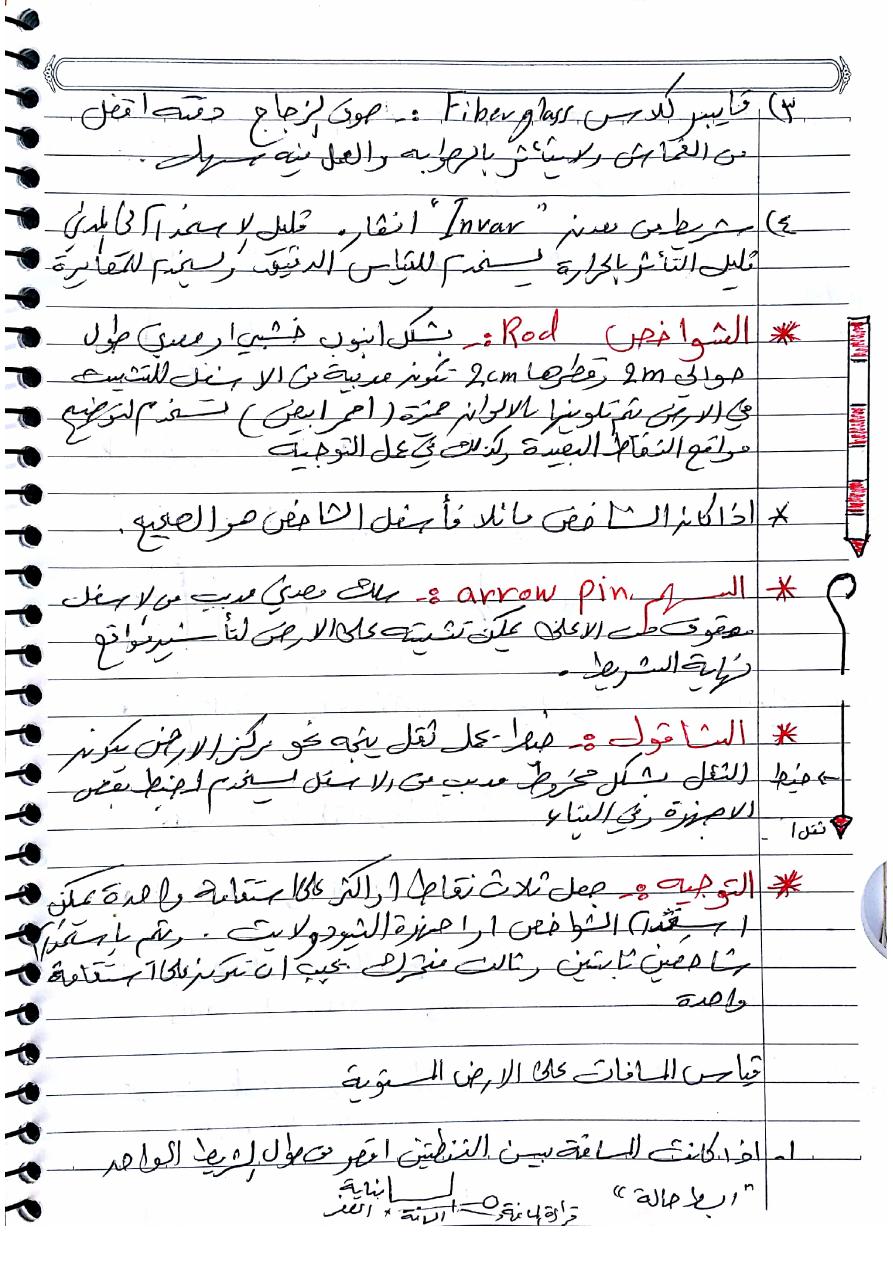 ٣) فايبر كلاس Fiberglass :- صوف الزجاج دقته افضل
من القماش ولا يتأثر بالرطوبة والعمل فيه سهل .
٤) شريط من معدن "Invar" انفار. قليل الاستخدام في المدني
قليل التأثر بالحرارة يستخدم للقياس الدقيق ويستخدم للمعايرة
* الشواخص Rod :- بشكل انبوب خشبي او معدني طول
حوالي 2m وقطرها 2cm تكون مدببة من الاسفل للتثبيت
في الارض يتم تلوينها بالالوان مميزة (احمر ابيض) تستخدم لتوضيح
مواقع النقاط البعيدة وكذلك في عمل التوجيه
* اذا كان الشاخص مائلا فأسفل الشاخص هو الصحيح .
* السهم arrow pin :- سلك معدني مدبب من الاسفل
معقوف من الاعلى يمكن تثبيته على الارض لتأشير مواقع
نهاية الشريط .
* الشاقول :- خيط يحمل ثقل يتجه نحو مركز الارض يكون
الثقل بشكل مخروط مدبب من الاسفل يستخدم لضبط بعض
الاجهزة وفي البناء
← خيط
ثقل
* التوجيه :- جعل ثلاث نقاط او اكثر على استقامة واحدة يمكن
استخدام الشواخص او اجهزة الثيودولايت . ويتم باستخدام
شاخصين ثابتين وثالث متحرك يجب ان تكون على استقامة
واحدة
قياس المسافات على الارض المستوية
١- اذا كانت المسافة بين النقطتين اقصر من طول الشريط الواحد
"ابسط حالة"